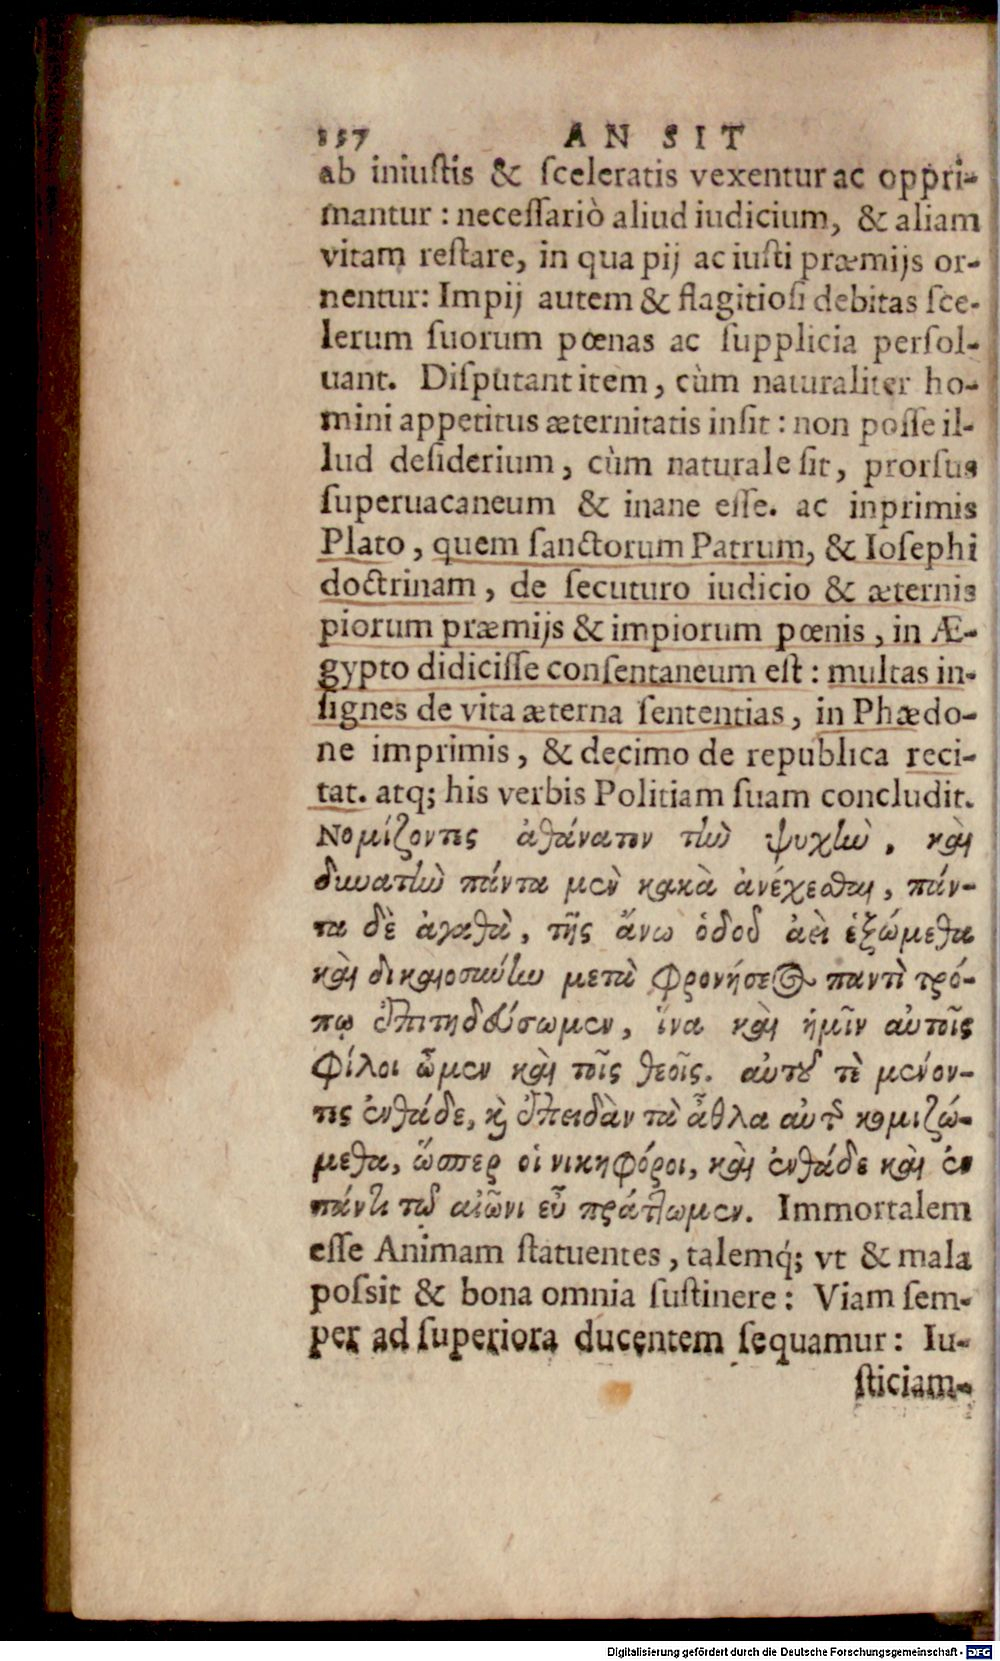 157 AN SIT
ab iniuſtis & ſceleratis vexentur ac oppri-
mantur : neceſſariò aliud iudicium, & aliam
vitam reſtare, in qua pij ac iuſti præmijs or-
nentur: Impij autem & flagitioſi debitas ſce-
lerum ſuorum pœnas ac ſupplicia perſol-
uant. Diſputant item, cùm naturaliter ho-
mini appetitus æternitatis inſit : non poſſe il-
lud deſiderium, cùm naturale ſit, prorſus
ſuperuacaneum & inane eſſe. ac inprimis
Plato, quem ſanctorum Patrum, & Ioſephi
doctrinam, de ſecuturo iudicio & æternis
piorum præmijs & impiorum pœnis, in Æ-
gypto didiciſſe conſentaneum eſt : multas in-
ſignes de vita æterna ſententias, in Phædo-
ne imprimis, & decimo de republica reci-
tat. atq; his verbis Politiam ſuam concludit.
Νομίζοντες ἀθάνατον τὴν ψυχὴν, καὶ
δυνατὴν πάντα μὲν κακὰ ἀνέχεσθαι, πάν-
τα δὲ ἀγαθὰ, τῆς ἄνω ὁδοῦ ἀεὶ ἑξώμεθα
καὶ δικαιοσύνην μετὰ φρονήσεως παντὶ τρό-
πῳ ἐπιτηδεύσωμεν, ἵνα καὶ ἡμῖν αὐτοῖς
φίλοι ὦμεν καὶ τοῖς θεοῖς. αὐτοῦ τὲ μένον-
τες ἐνθάδε, καὶ ἐπειδὰν τὰ ἆθλα αὐτῆς κομιζώ-
μεθα, ὥσπερ οἱ νικηφόροι, καὶ ἐνθάδε καὶ ἐν
πάντι τῷ αἰῶνι εὖ πράττωμεν. Immortalem
eſſe Animam ſtatuentes, talemq́; vt & mala
poſsit & bona omnia ſuſtinere : Viam ſem-
per ad ſuperiora ducentem ſequamur : Iu-
ſticiam-
Digitalisierung gefördert durch die Deutsche Forschungsgemeinschaft - DFG